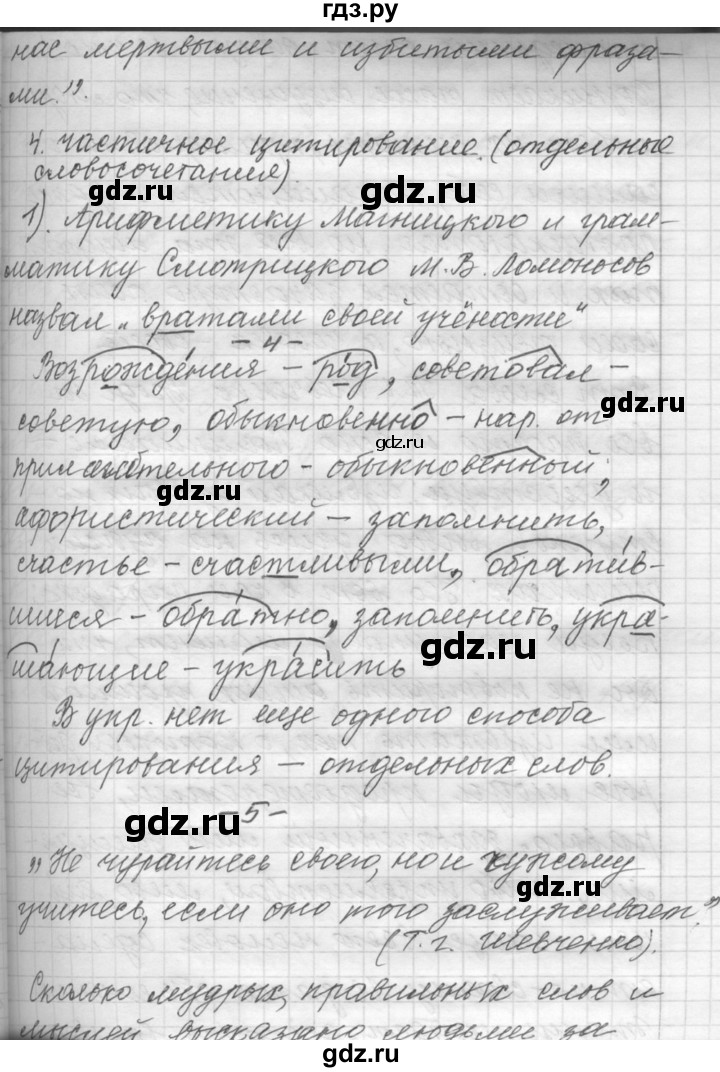 гдз.ру
нас мертвыми и избитыми фраза-
ми."
4. частичное цитирование. (отдельные
словосочетания).
gdz.ru gdz.ru
1). Арифметику Магницкого и грам-
матику Смотрицкого М. В. Ломоносов
назвал „вратами своей учёности"
- 4 -
Возрождения – род, советовал –
советую, обыкновенно – нар. от
gdz.ru
прилагательного – обыкновенный;
gdz.ru
афористический – запомнить,
счастье – счастливыми, обратив-
шиеся – обратно, запомнить, укра-
gdz.ru
шающие – украсить
В упр. нет еще одного способа
цитирования – отдельных слов.
gdz.ru
- 5 -
„Не чурайтесь своего, но и чужому
учитесь, если оно того заслуживает."
gdz.ru
(Т. Г. Шевченко).
Сколько мудрых, правильных слов и
gdz.ru
мыслей высказано людьми за
gdz.ru